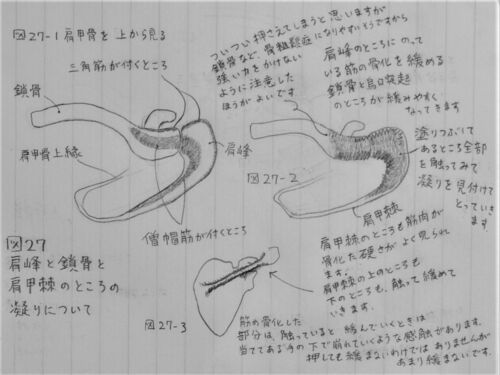 図27-1 肩甲骨を上から見る
三角筋が付くところ
鎖骨
肩甲骨上縁
肩峰
僧帽筋が付くところ
図27
肩峰と鎖骨と
肩甲棘のところの
凝りについて
ついつい押さえてしまうと思いますが
鎖骨など骨粗鬆症になりやすいそうですから
強い力をかけない
ように注意した
ほうがよいです
肩峰のところにのって
いる筋の骨化を緩める
鎖骨と烏口突起
のところが緩みやすく
なってきます
図27-2
塗りつぶして
あるところ全部
を触ってみて
凝りを見付けて
とっていき
ます
肩甲棘
肩甲棘のところも筋肉が
骨化した硬さがよく見られ
ます。
肩甲棘の上のところも
下のところも、触って緩めて
いきます。
図27-3
筋の骨化した
部分は、触っていると緩んでいくときは
当ててある手の下で崩れていくような感触があります。
押しても緩まないわけではありませんが
あまり緩まないです。